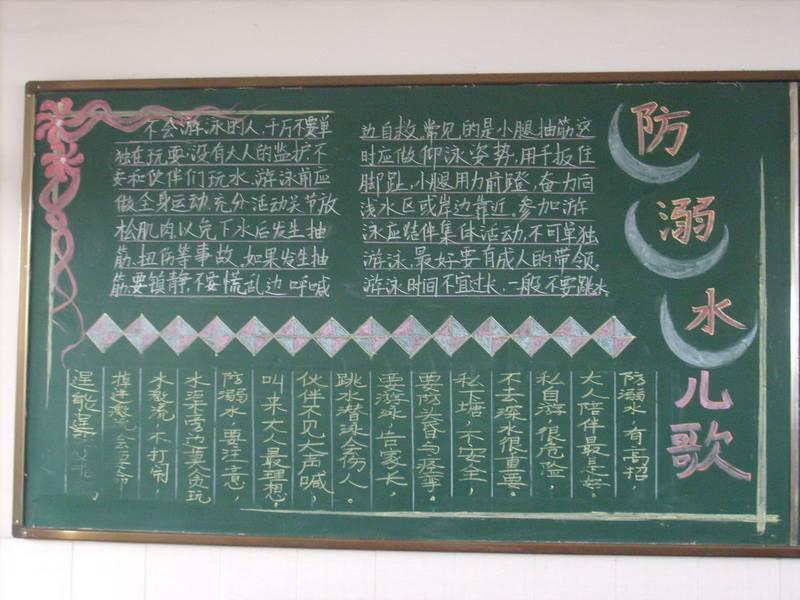 防溺水儿歌
不会游泳的人,千万不要单
独在玩耍,没有大人的监护,不
要和伙伴们玩水。游泳前应
做全身运动,充分活动关节放
松肌肉以免下水后发生抽
筋、扭伤等事故。如果发生抽
筋,要镇静,不要慌乱,边呼喊
边自救。常见的是小腿抽筋这
时应做仰泳姿势,用手扳住
脚趾,小腿用力前蹬,奋力向
浅水区或岸边靠近。参加游
泳应结伴集体活动,不可单独
游泳。最好要自成人的带领。
游泳时间不宜过长,一般不要跳水
防溺水,有高招,
大人陪伴最是好。
私自游,很危险,
不去深水很重要。
私下塘,不安全,
要防头昏与痉挛。
要游泳,告家长,
跳水潜泳会伤人。
伙伴不见大声喊,
叫来大人最理想。
防溺水,要注意,
水渠旁边莫贪玩
水激流,不打闹,
掉进
逞能